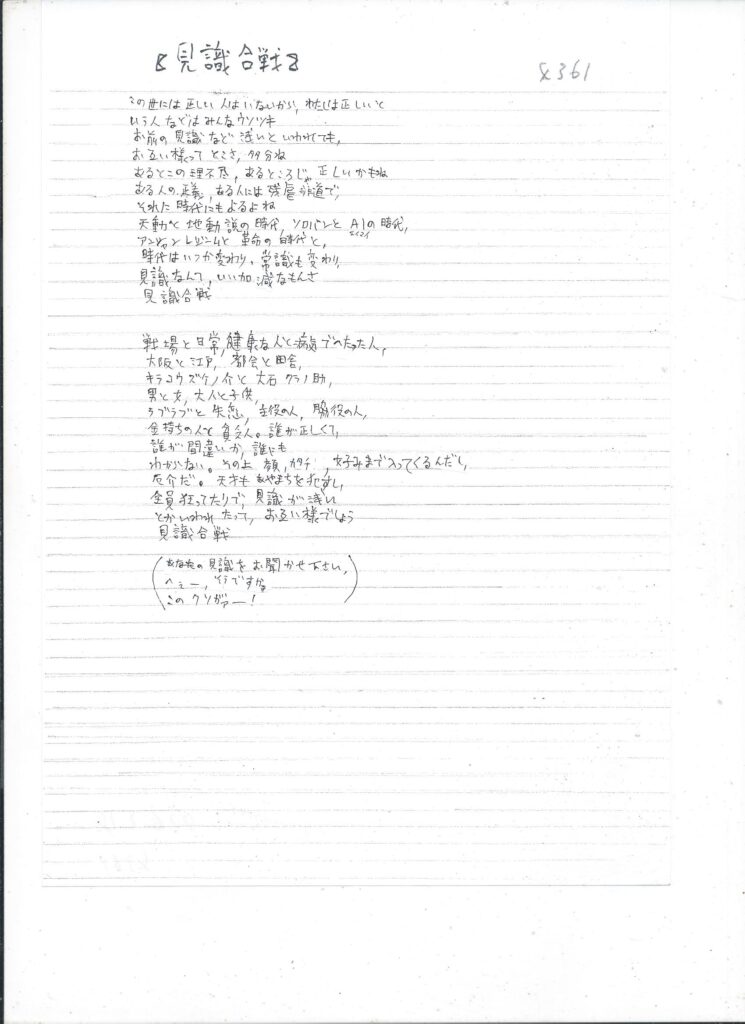 見識合戦
361
この世には正しい人はいないから、わたしは正しいと
いう人などはみんなウソツキ
お前の見識など浅いといわれても、
お互い様ってとこさ、多分ね
あるとこの理不尽、あるところじゃ正しいかもね
ある人の正義、ある人には残虐非道で、
それた時代にもよるよね
天動と地動説の時代、ソロバンとAIの時代、
エイアイ
アンシャンレジームと革命の時代と、
時代はいつか変わり、常識も変わり、
見識なんて、いい加減なもんさ
見識合戦
戦場と日常、健康な人と病気でへたった人、
大阪と江戸、都会と田舎、
キラコウズケノ介と大石クラノ助、
男と女、大人と子供、
ラブラブと失恋、主役の人、脇役の人、
金持ちの人と貧乏人。誰が正しくて、
誰が間違いか、誰にも
わからない。その上顔、カタチ、好みまで入ってくるんだし、
厄介だ。天才もあやまちを犯すし、
全員狂ってたりで、見識が浅い
とかいわれたって、お互い様でしょう
見識合戦
(あなたの見識をお聞かせ下さい、
へぇー、そうですか。
このクソがァー!)